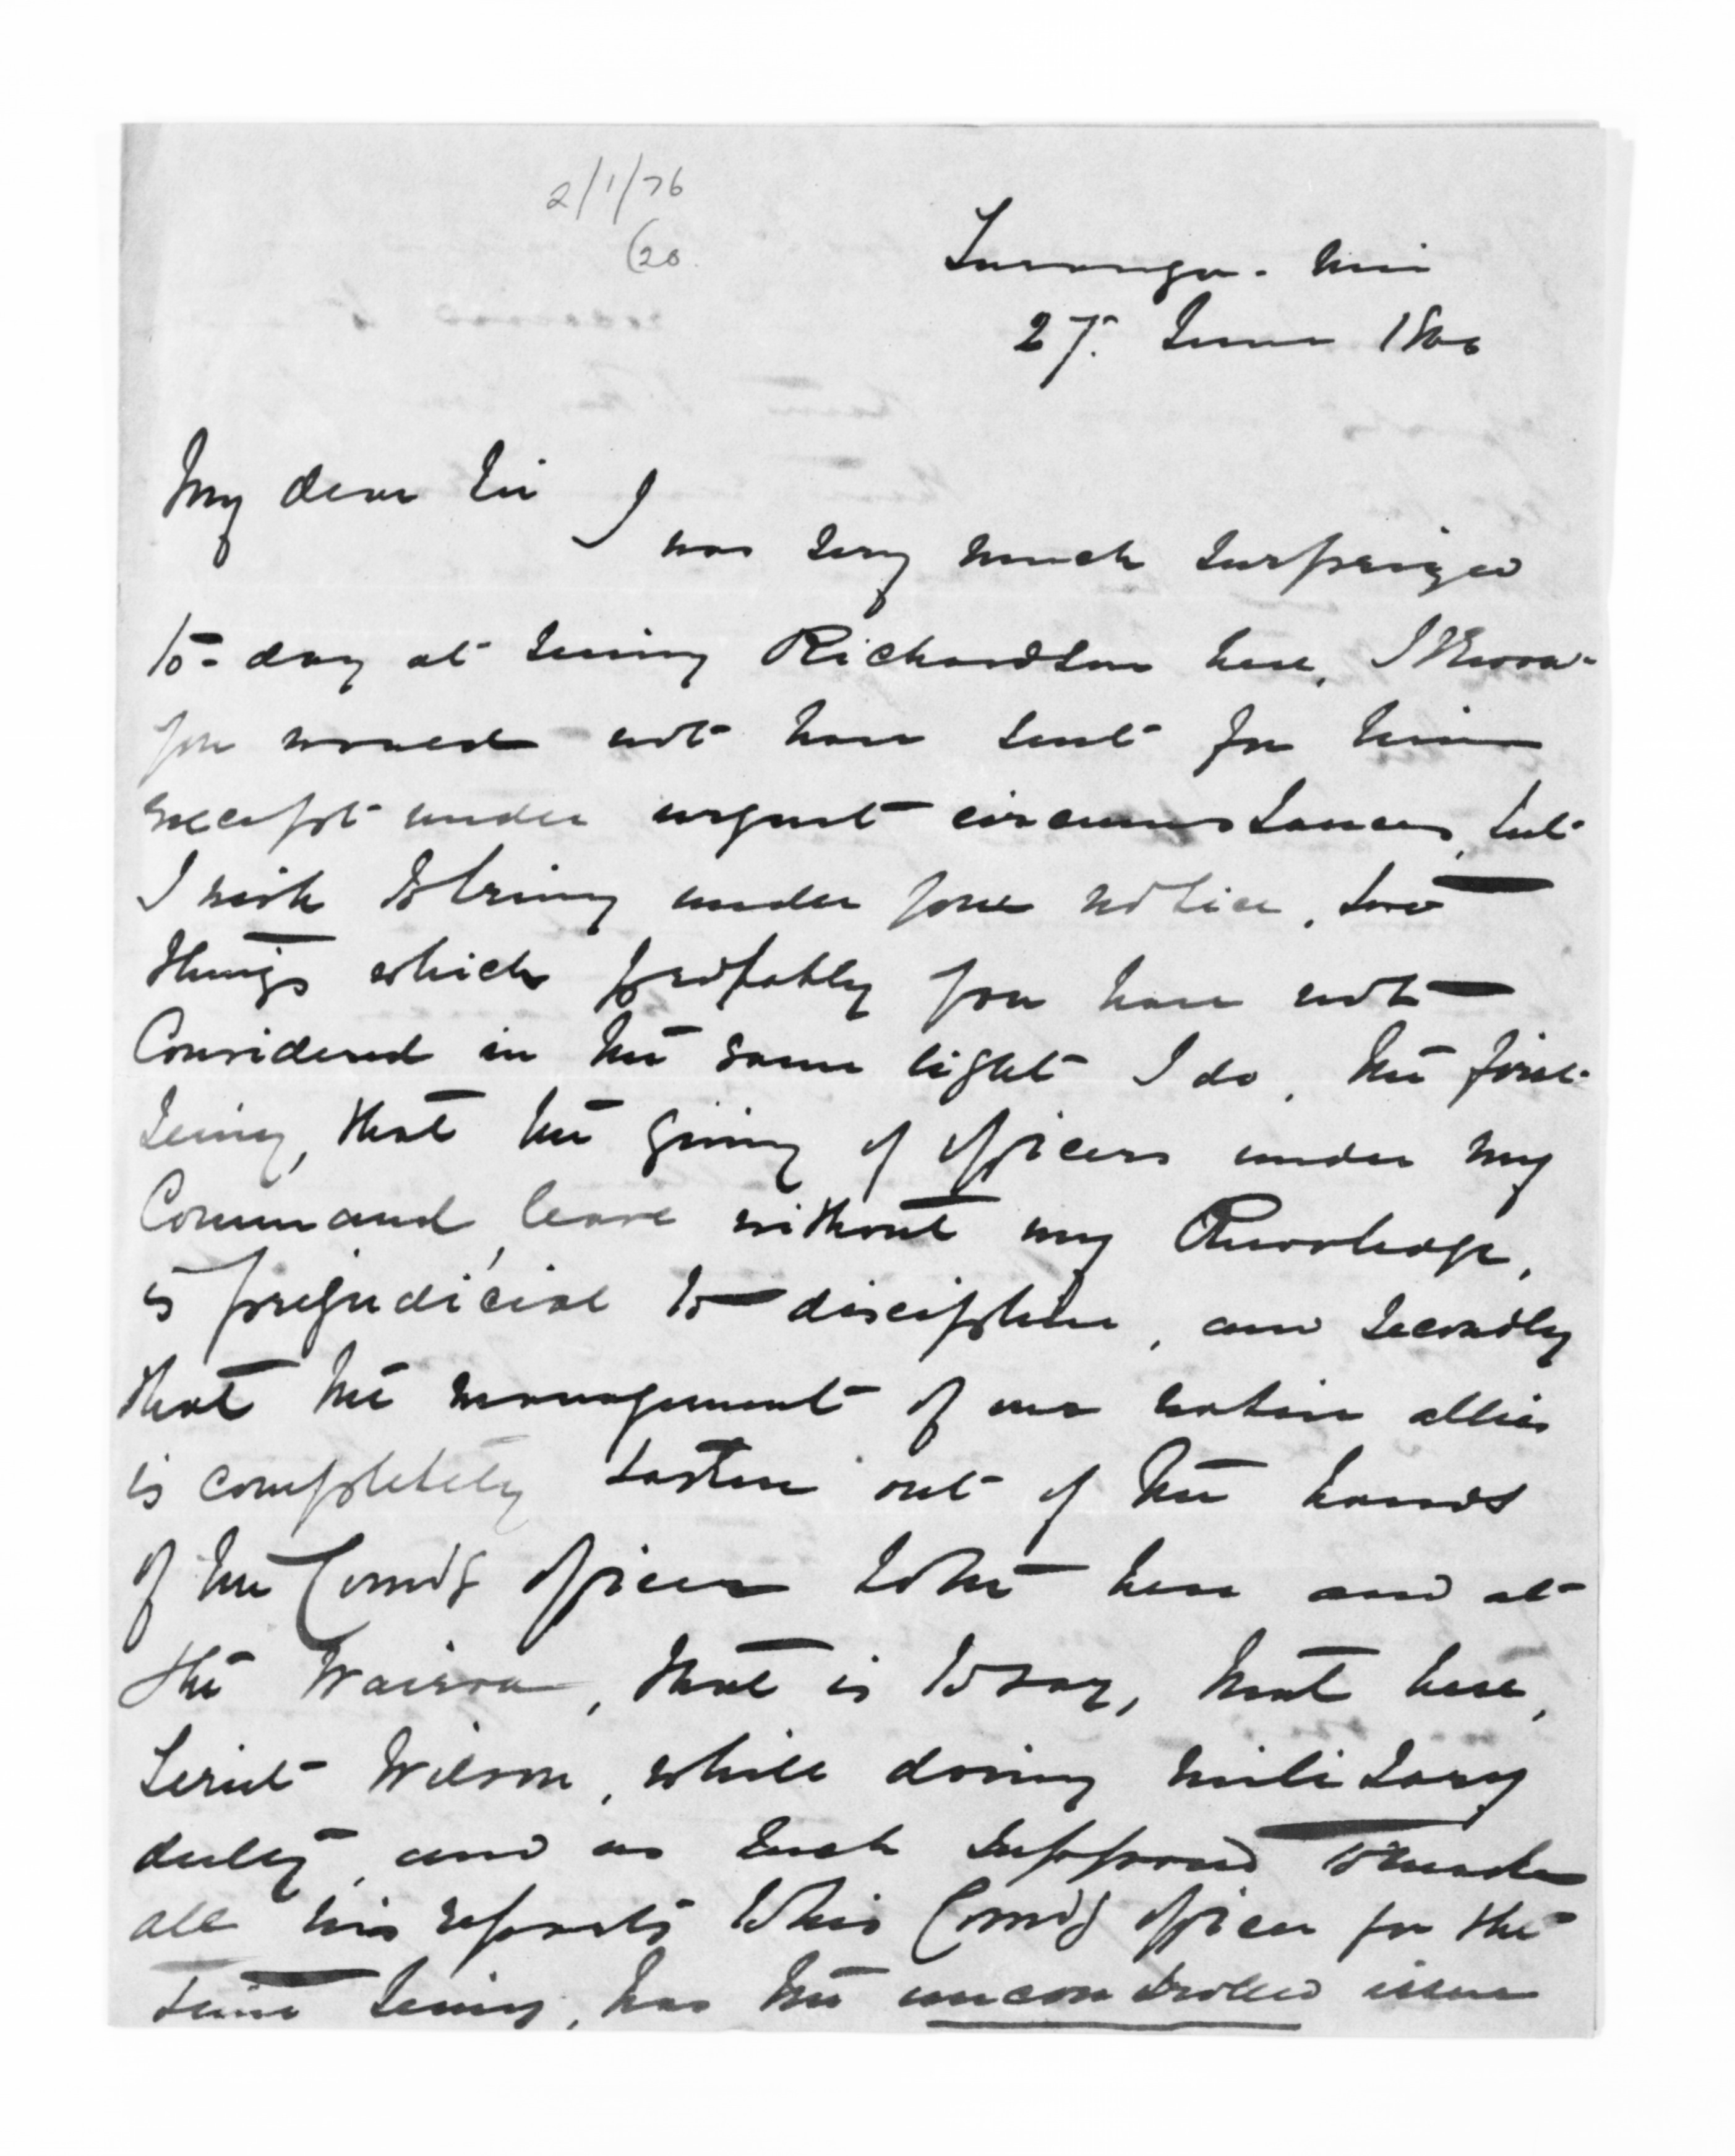 2/1/76
(20
Turanga-nui
27. June 1866
My dear Sir
I was very much surprized
to-day at seeing Richardson here, I know
you would not have sent for him
except under urgent circumstances, but
I wish to bring under your notice, two
things which probably you have not
considered in the same light I do, the first
being, that the giving of officers under my
Command, leave without my Knowledge,
is prejudicial to discipline, and secondly
that the management of our native allies
is completely taken out of the hands
of the Comdg officer both here and at
the Wairoa, that is to say, that here,
Lieut Wilson, while doing military
duty, and as such supposed to make
all his reports to his Comdg officer for the
time being, has the uncontrolled issue